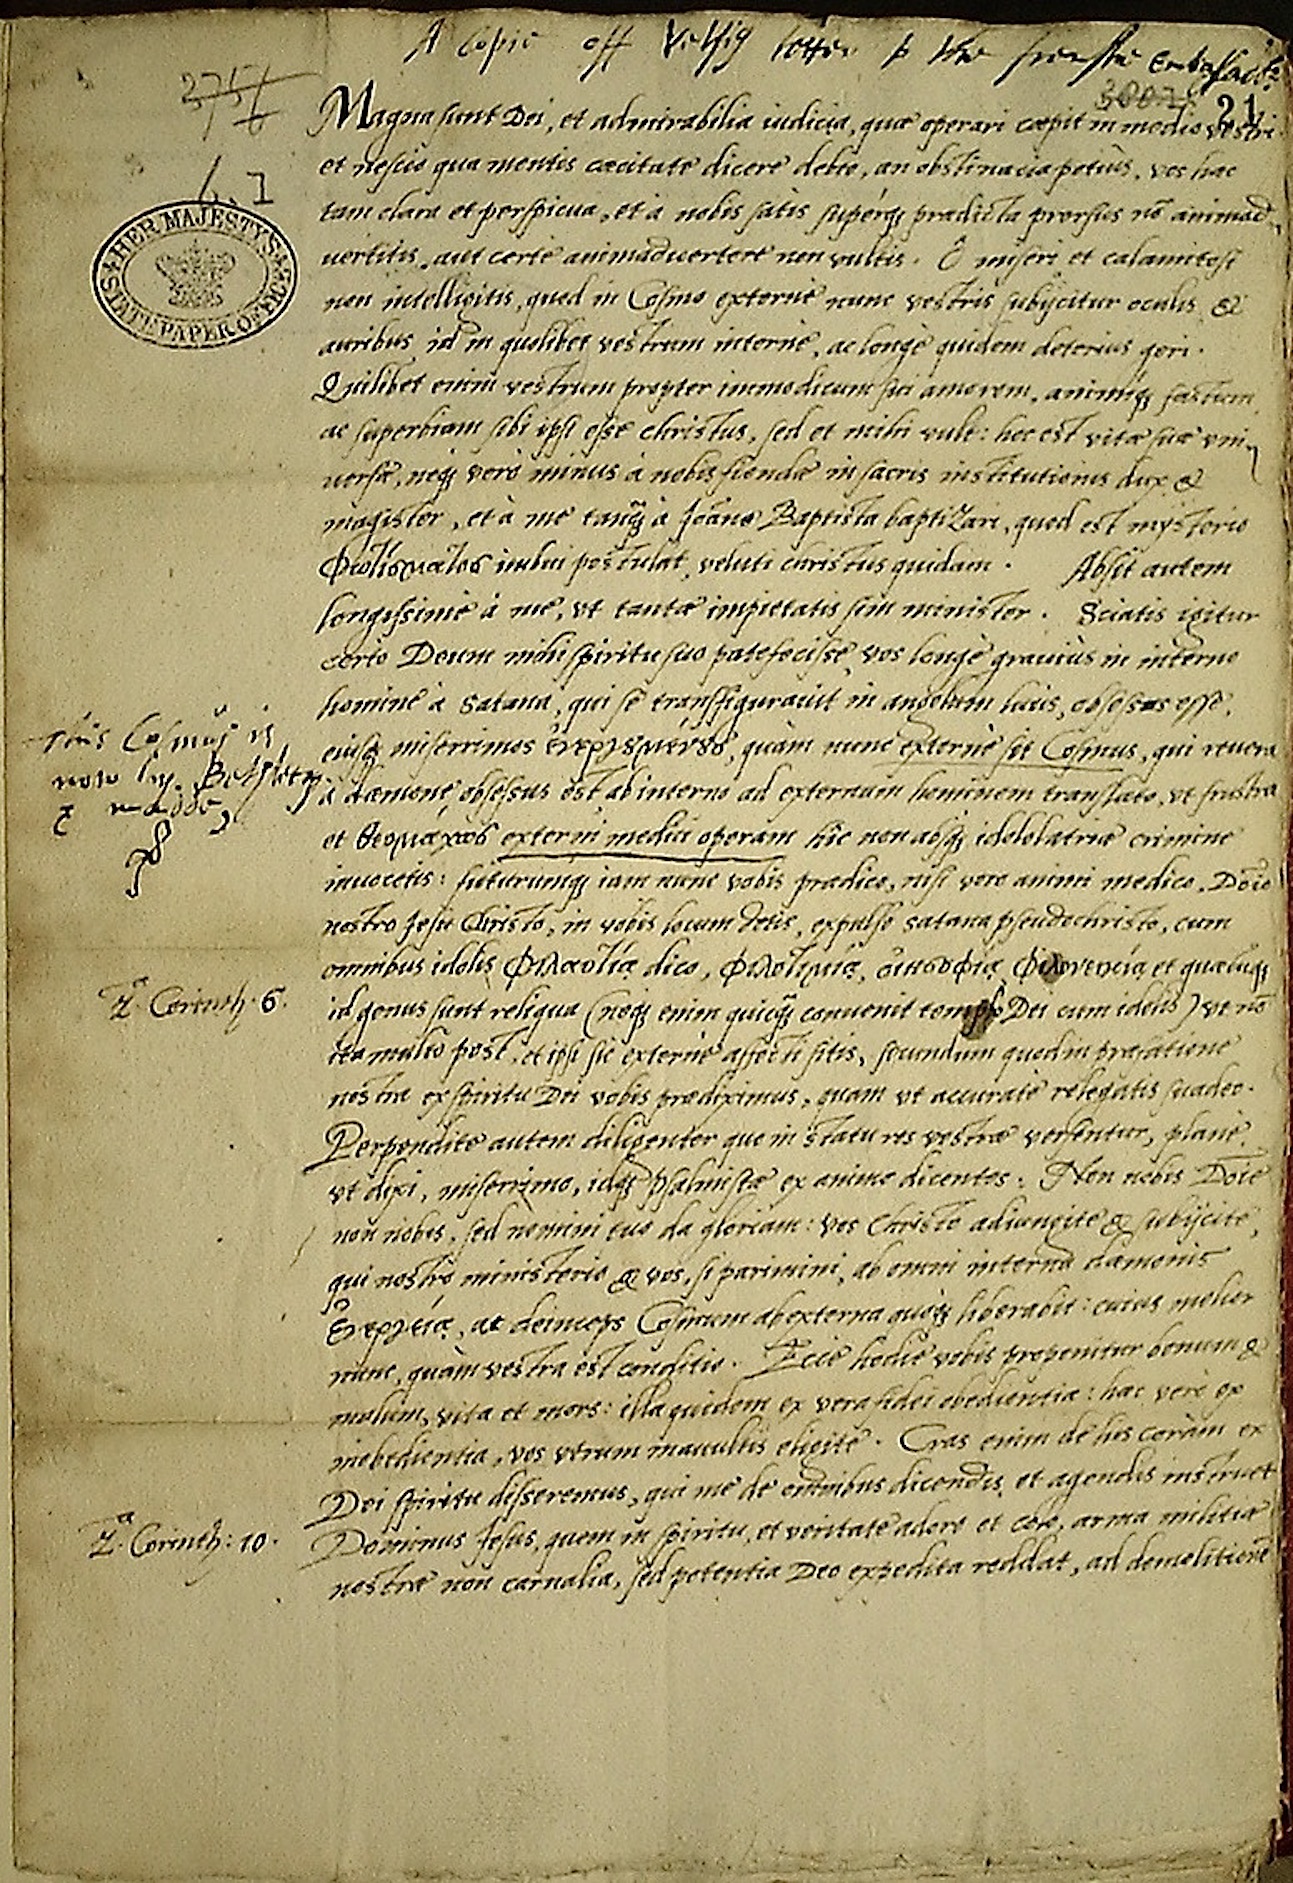 A copie off Velsig letter to the frenshe Embassad:
3757
3802
21
6. 7
HER MAJESTY'S STATE PAPER OFFICE
Magna sunt Dei, et admirabilia iudicia, quæ operari cœpit in medio vestri
et nescio qua mentis cæcitate dicere debeo, an obstinacia potius, vos hæc
tam clara et perspicua, et à nobis satis supérq; prædicta prorsus nō animad-
uertitis, aut certè animaduertere non vultis. O miseri et calamitosi
non intelligitis, quod in Cosmo externè nunc vestris subijcitur oculis &
auribus id in quolibet vestrum internè, ac longè quidem deterius geri.
Quilibet enim vestrum propter immodicum sui amorem, animiq; fastum
ac superbiam sibi ipsi esse christus, sed et mihi vult: hoc est vitæ suæ vni
uersæ, neq; verò minus à nobis fiendæ in sacris institutionis dux &
magister, et à me tanq̃; à Joāne Baptista baptizari, quod est mysterio
Φωτίσματος imbui postulat, veluti christus quidam. Absit autem
longissimè à me, vt tantæ impietatis sim minister. Sciatis igitur
certò Deum mihi spiritu suo patefecisse, vos longè grauiùs in interno
homine à Satana, qui se transfigurauit in angelum lucis, obsessos esse,
eiusq; miserrimos ἐνεργουμένους, quàm nunc externè sit Cosmus, qui reuera
This Cosmus is
now Mr. Bethlem
madde
à dæmone obsessus est ab interno ad externum hominem translato, vt frustra
et θεομαχως externi medici operam hic non absq; idololatriæ crimine
inuocetis: futurumq; iam nunc vobis prædico, nisi vero animi medico, Dōio
nostro Jesu Christo, in vobis locum detis, expulso Satana pseudochristo, cum
omnibus idolis, Φιλαυτίᾳ dico, Φιλοτιμίᾳ, οἰησοφίᾳ, Φιλονεικίᾳ, et quæcuq;
2ᵃ. Corinth. 6.
id genus sunt reliqua (neq; enim quicq̃; conuenit templo Dei cum idolis) vt nō
ita multò post, et ipsi sic externè affecti sitis, secundum quod in præfatione
nostra ex spiritu Dei vobis prædiximus, quam vt accuratè relegatis suadeo.
Perpendite autem diligenter quo in statu res vestræ versentur, planè,
vt dixi, miserrimo, idq; psalmistæ ex animo dicentes: Non nobis Dōie
non nobis, sed nomini tuo da gloriam: vos Christo adiungite & subijcite,
qui nostro ministerio & vos, si parimini, ab omni interno dæmonis
ἐνεργείᾳ, ac deinceps Cosmum ab externa quoq; liberabit: cuius melior
nunc, quàm vestra est conditio. Ecce hodie vobis proponitur bonum &
malum, vita et mors: illa quidem ex vera fidei obedientia: hæc verò ex
inobedientia, vos vtrum mauultis eligite. Cras enim de his coràm ex
Dei spiritu disseremus, qui me de omnibus dicendis et agendis instruet
2ᵃ. Corinth: 10.
Dominus Jesus, quem in spiritu, et veritate adoro et colo, arma militiæ
nostræ non carnalia, sed potentia Deo expedita reddat, ad demolitionē